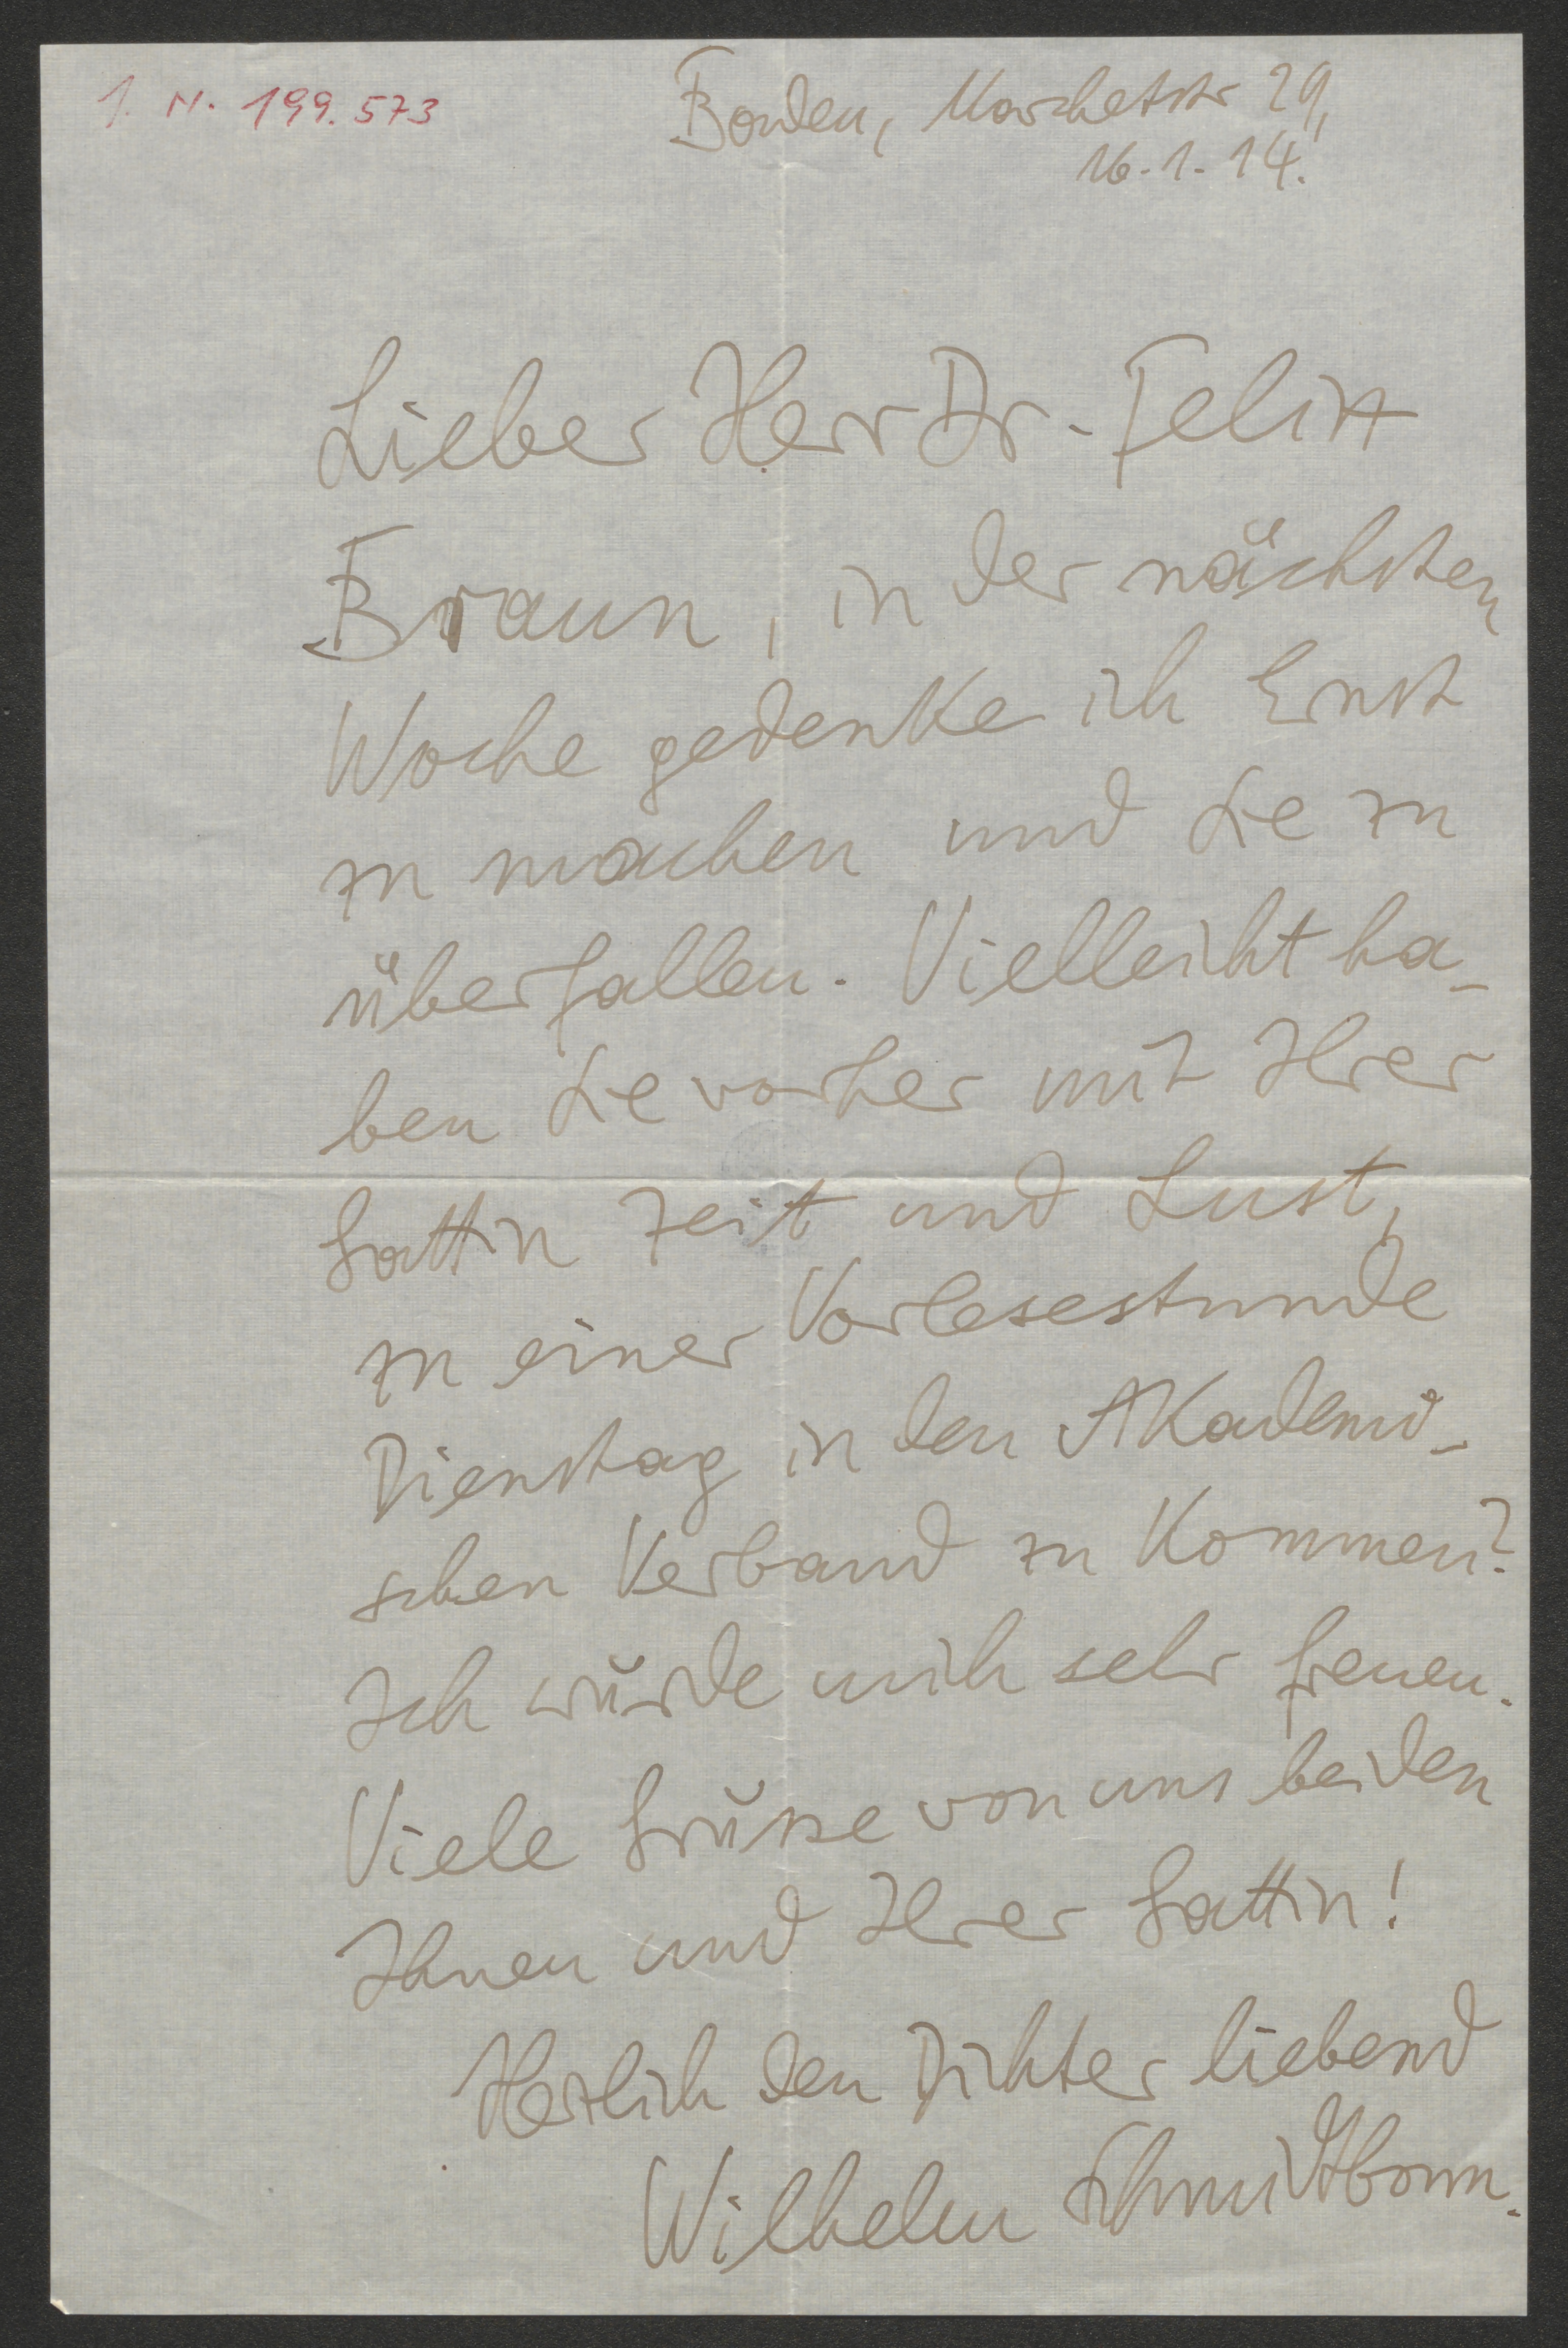 I. N. 199.573
Baden, Marchetstr 29,
16.1.14.
Lieber Herr Dr. Felix
Braun, in der nächsten
Woche gedenke ich Ernst
zu machen und Sie zu
überfallen. Vielleicht ha-
ben Sie vorher mit Ihrer
Gattin Zeit und Lust,
zu einer Vorlesestunde
Dienstag in den Akademi-
schen Verband zu kommen?
Ich würde mich sehr freuen.
Viele Grüsse von uns beiden
Ihnen und Ihrer Gattin!
Herzlich den Dichter liebend
Wilhelm Schmidtbonn.